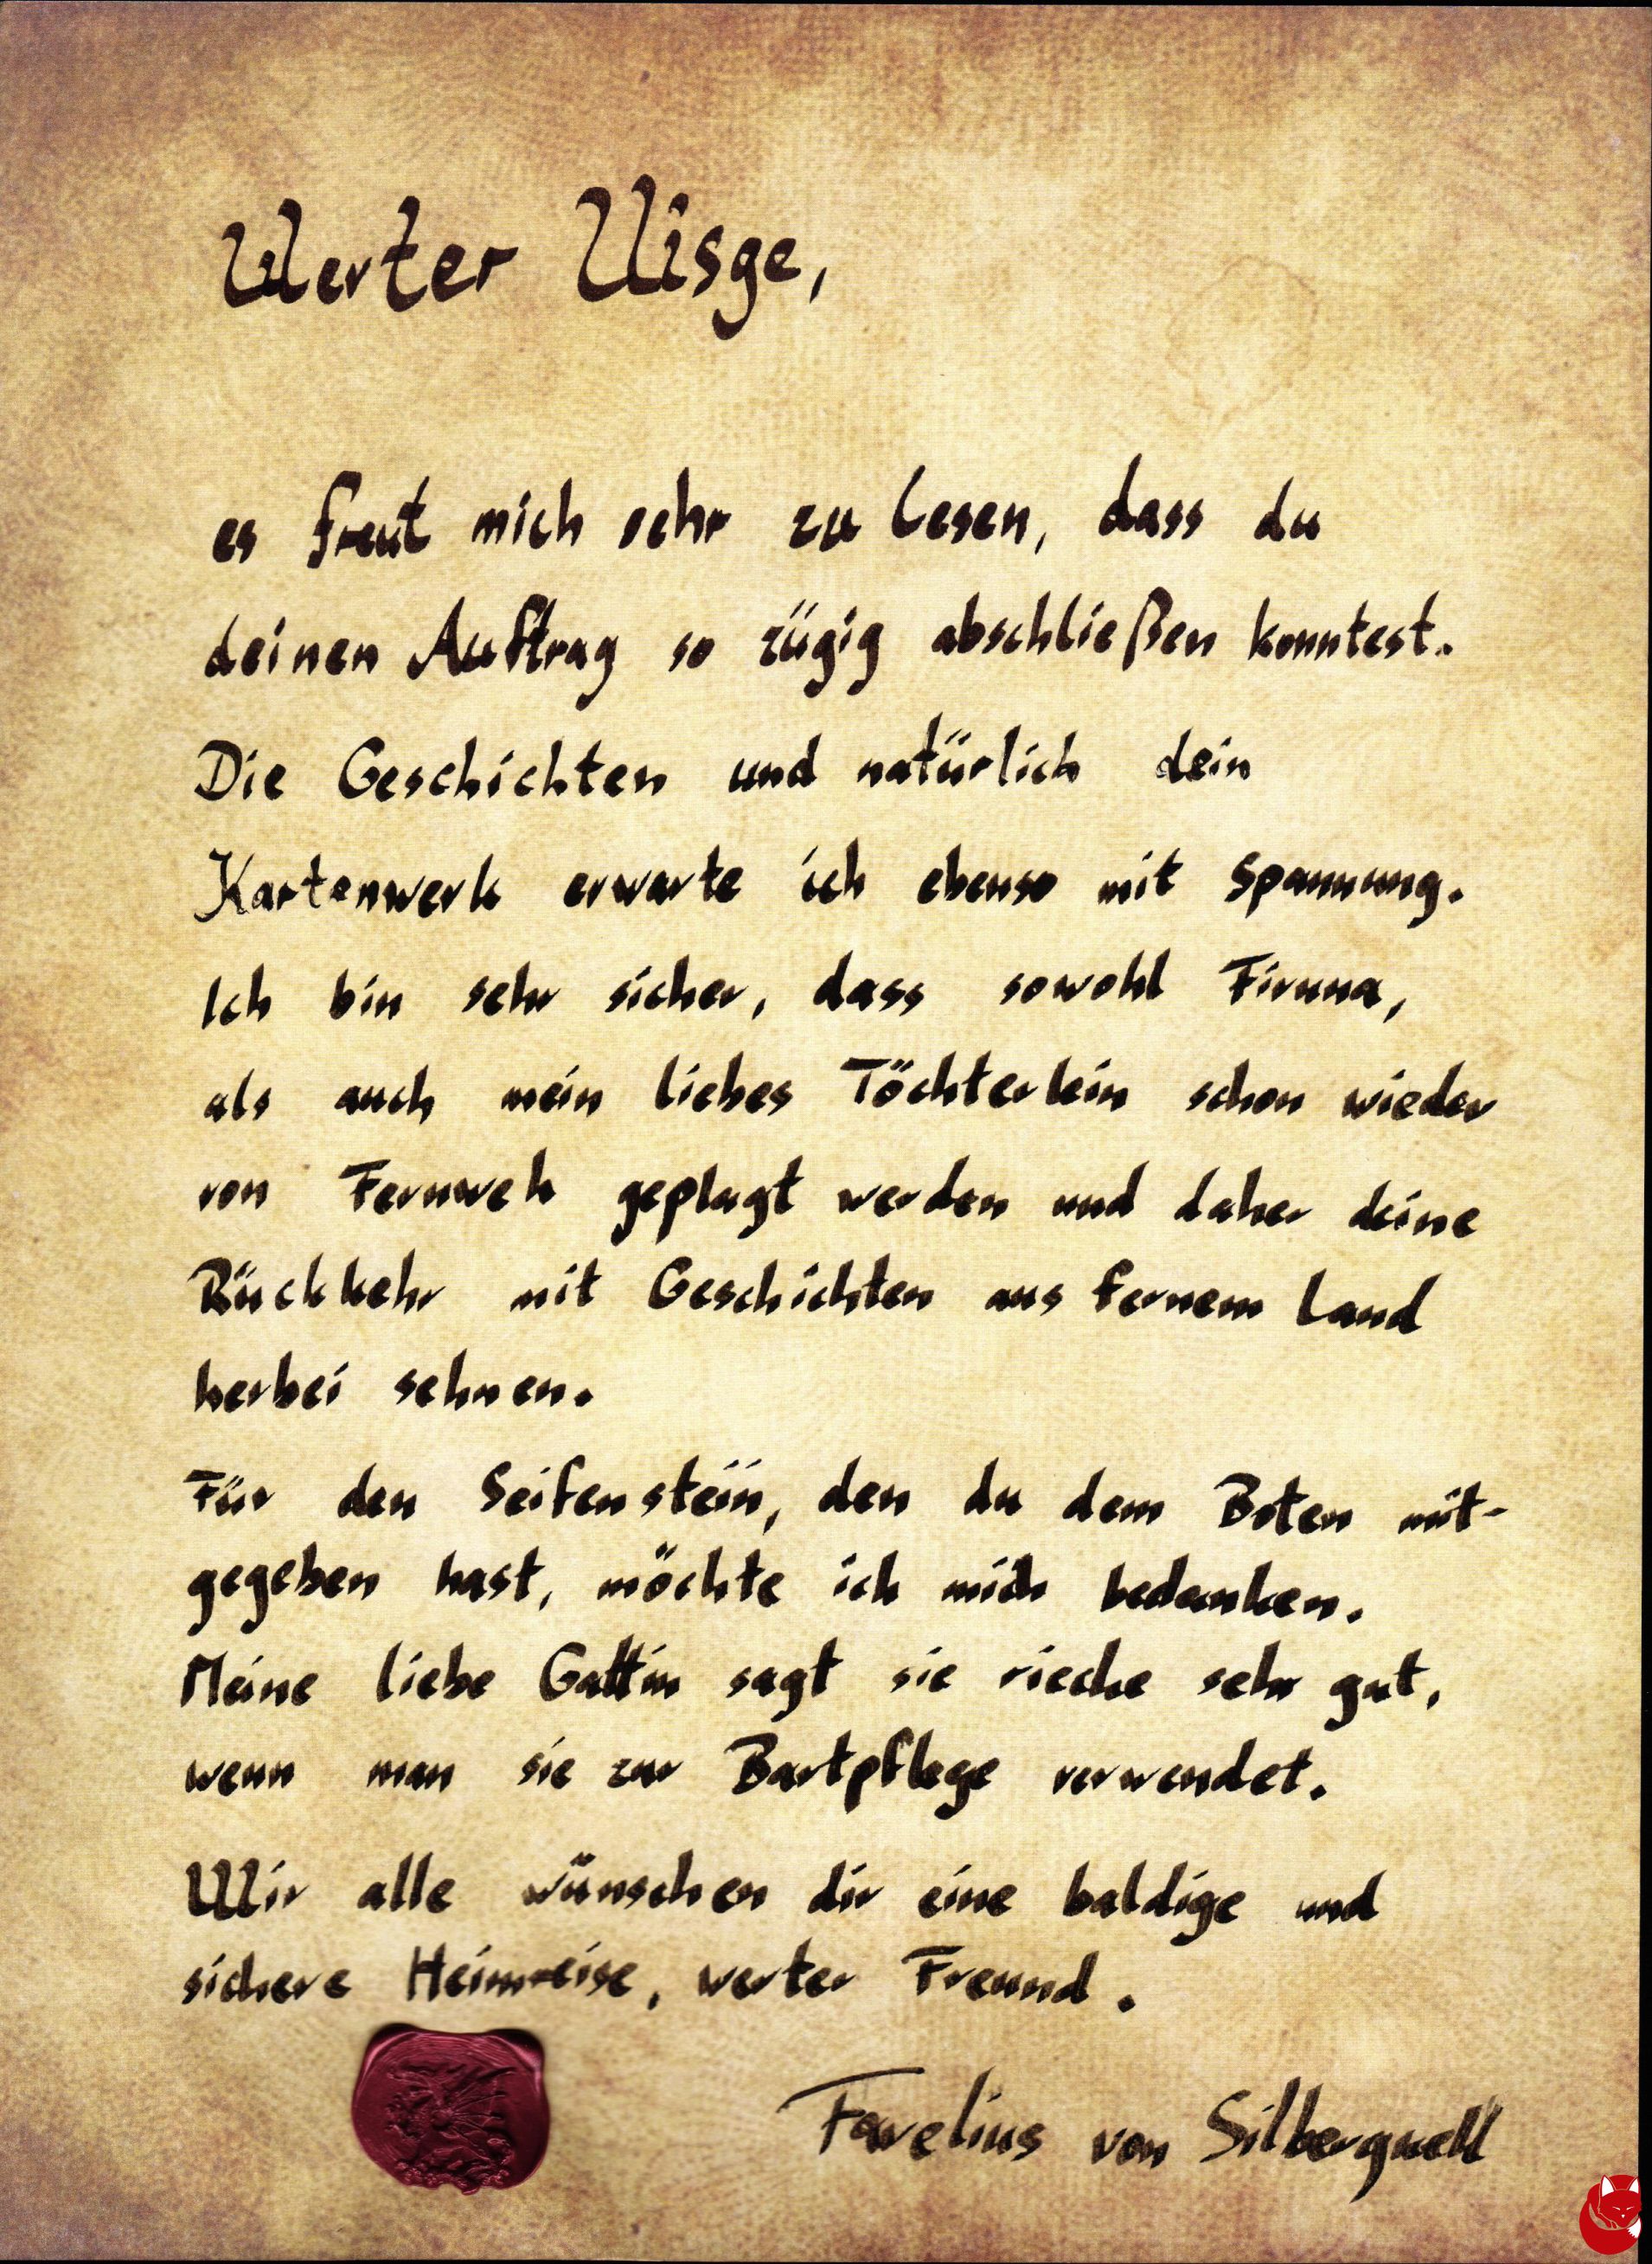 Werter Uisge,
es freut mich sehr zu lesen, dass du
deinen Auftrag so zügig abschließen konntest.
Die Geschichten und natürlich dein
Kartenwerk erwarte ich ebenso mit Spannung.
Ich bin sehr sicher, dass sowohl Firuna,
als auch mein liebes Töchterlein schon wieder
von Fernweh geplagt werden und daher deine
Rückkehr mit Geschichten aus fernem Land
herbei sehnen.
Für den Seifenstein, den du dem Boten mit-
gegeben hast, möchte ich mich bedanken.
Meine liebe Gattin sagt sie rieche sehr gut,
wenn man sie zur Bartpflege verwendet.
Wir alle wünschen dir eine baldige und
sichere Heimreise, werter Freund.
Favelius von Silberquell